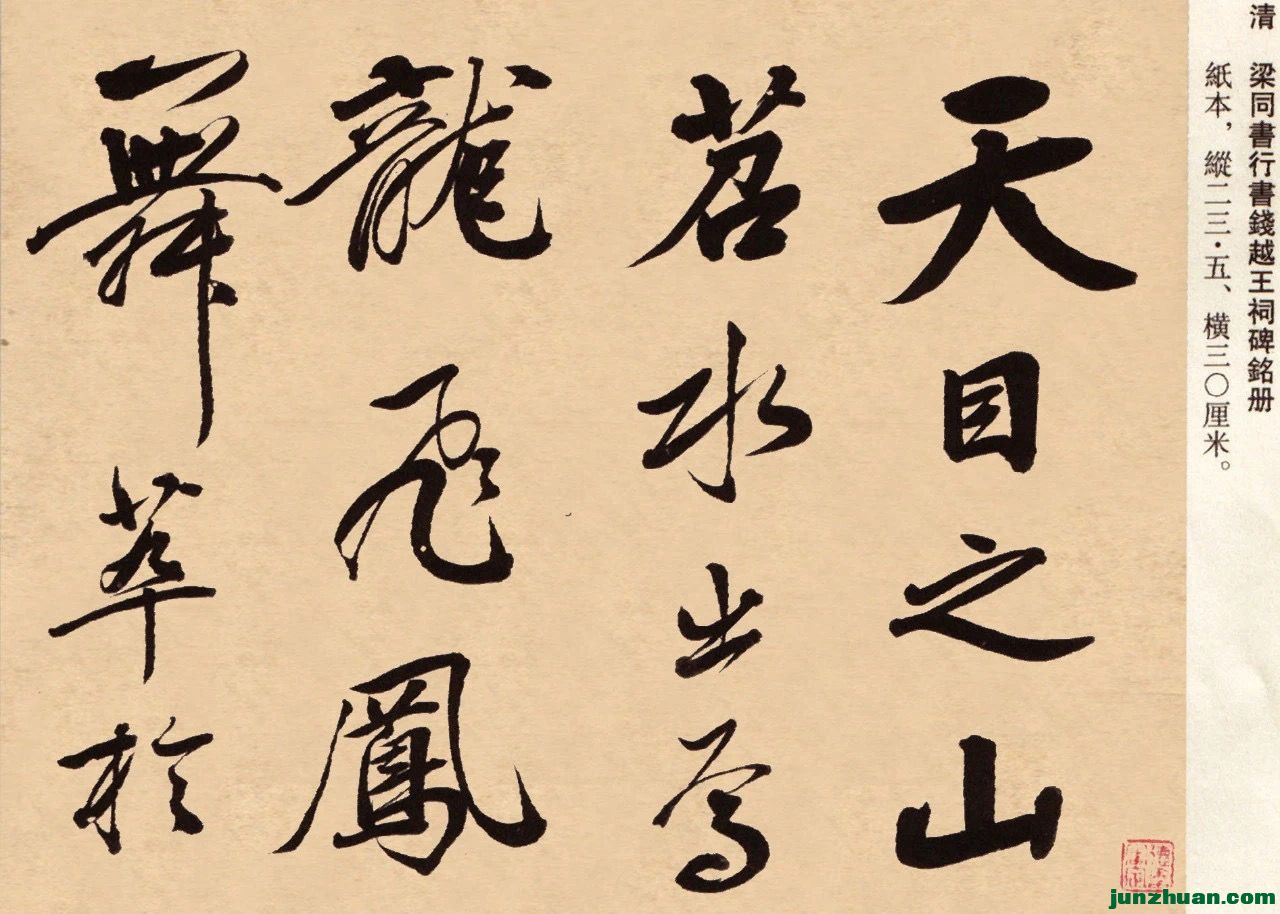 清　梁同書行書錢越王祠碑銘册
紙本，縱二三·五、橫三〇厘米。
天目之山
苕水出焉
龍飛鳳
舞萃於
junzhuan.com